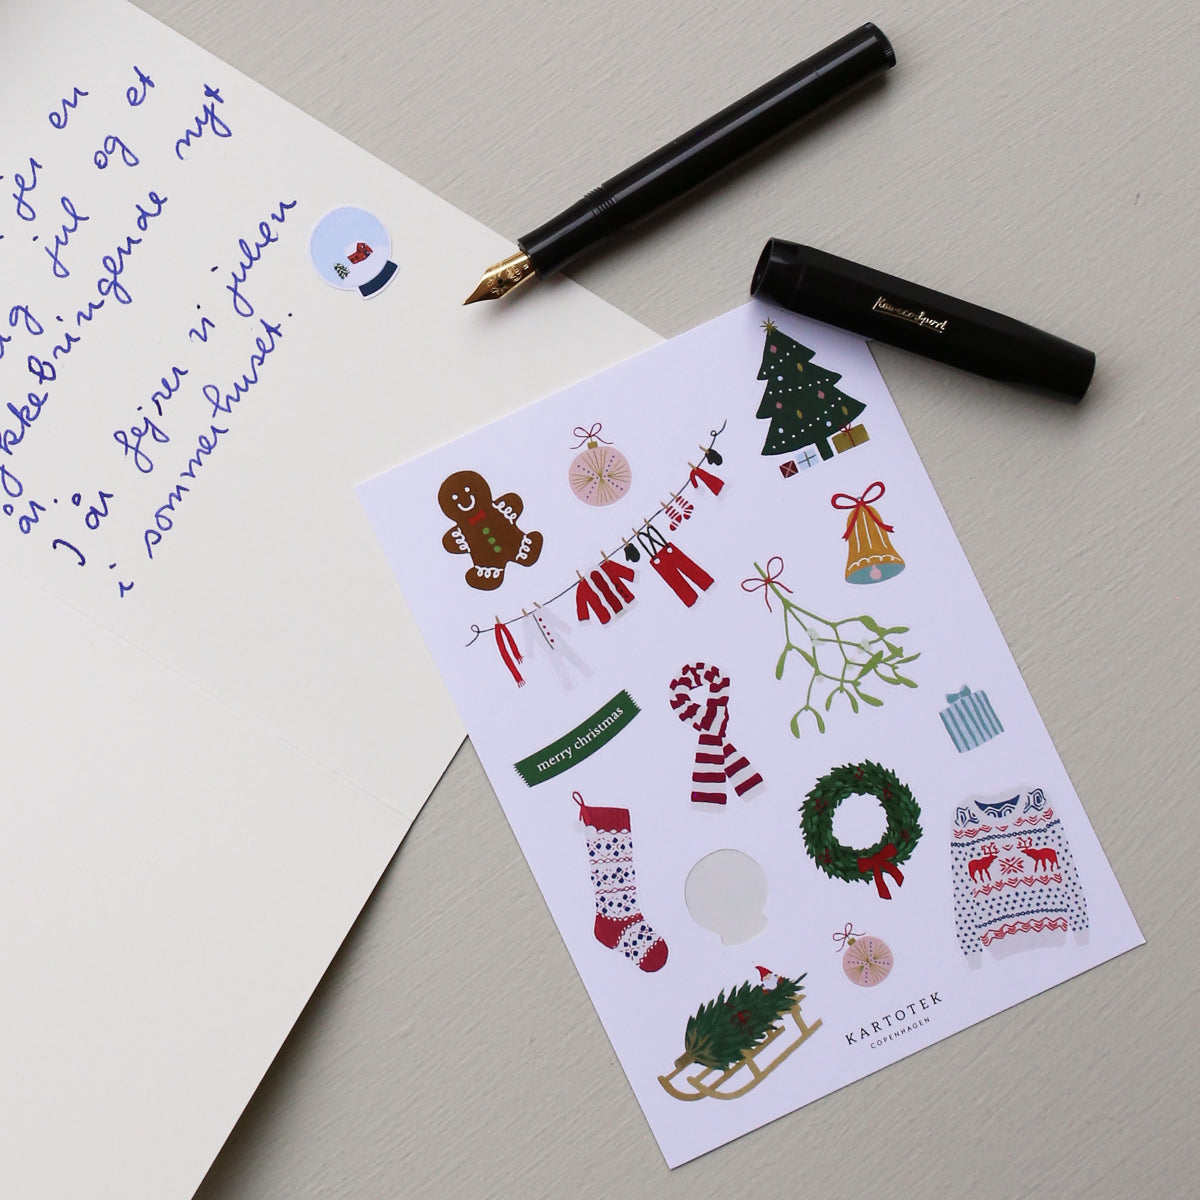 jer en
jul og et
kkebringende nyt
år.
I år fejrer vi julen
i sommerhuset.
Kaweco Sport
merry christmas
KARTOTEK
COPENHAGEN